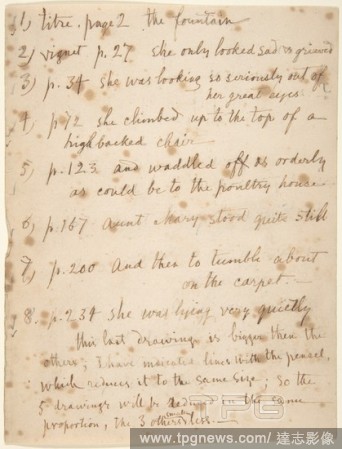 1) titre. page 2 the fountain
2) vignet p. 27 she only looked sad & grieved
3) p. 34 she was looking so seriously out of
her great eyes
4) p 72 she climbed up to the top of a
high backed chair
5) p. 123 and waddled off as orderly
as could be to the poultry house
6) p. 167 Aunt Mary stood quite still
7) p. 200 And then to tumble about
on the carpet. —
8. p. 234 She was lying very quietly
this last drawing is bigger than the
others; I have indicated lines with the pencil,
which reduces it to the same size; so the
5 drawings will be in the same
proportion, the 3 others less. —
TPG
www.tpgnews.com / 達志影像